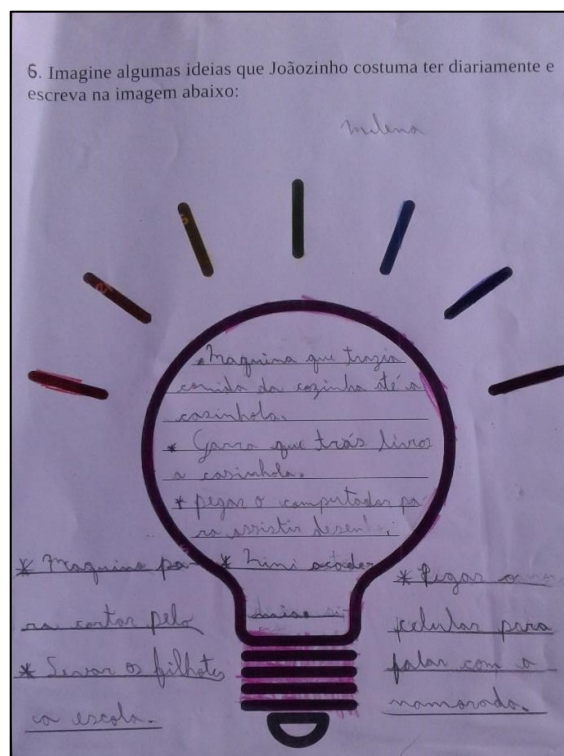 6. Imagine algumas ideias que Joãozinho costuma ter diariamente e
escreva na imagem abaixo:
Milena
* Maquina que trazia
comida da cozinha até a
casinhola.
* Garra que trás livros
a casinhola.
* pegar o computador pa-
ra assistir desenho.
* Maquina pa-
ra cortar pelo
* Levar os filhotes
a escola.
* Mini
* Pegar o
celular para
falar com a
namorada.